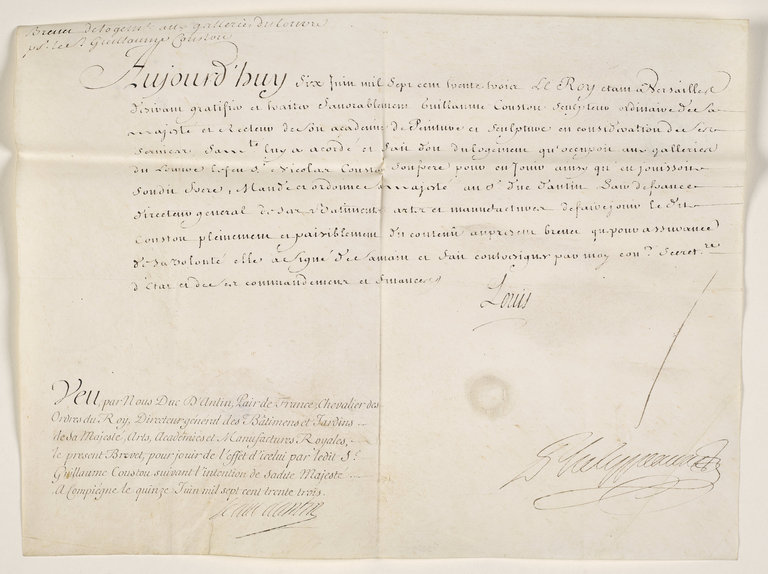 Brevet de logement aux galleries du Louvre
pr. le Sr. Guillaume Coustou
Aujourd'huy dix Juin mil sept cent trente trois Le Roy etant a Versailles
desirant gratifier et traiter favorablement Guillaume Coustou Sculpteur ordinaire de sa
majesté et Recteur de son academie de Peinture et Sculpture en consideration de ses
services, Sa mté. luy a acordé et fait don du logement qu'occupoit aux galleries
du Louvre le feu Sr. Nicolas Coustou son frere pour en jouir ainsy qu'en jouissoit
son dit frere, Mande et ordonne sa majesté au Sr. Duc d'antin Pair de france et
directeur general de ses Batiments arts et manufactures de faire jouir le dit
Coustou pleinement et paisiblement du contenu au present brevet que pour assurance
de sa volonté elle a signé de sa main et fait contresigner par moy conr. Secretre.
d'Etat et de ses commandemens et finances
Louis
Phelypeaux
Veu, par Nous Duc D'Antin, Pair de France, Chevalier des
Ordres du Roy, Directeur général des Bâtimens et Jardins
de sa Majesté, Arts, Académies et Manufactures Royales,
le present Brevet, pour jouir de l'effet d'icelui par ledit Sr.
Guillaume Coustou suivant l'intention de sadite Majesté
A Compiègne le quinze Juin mil sept cent trente trois.
le duc dantin